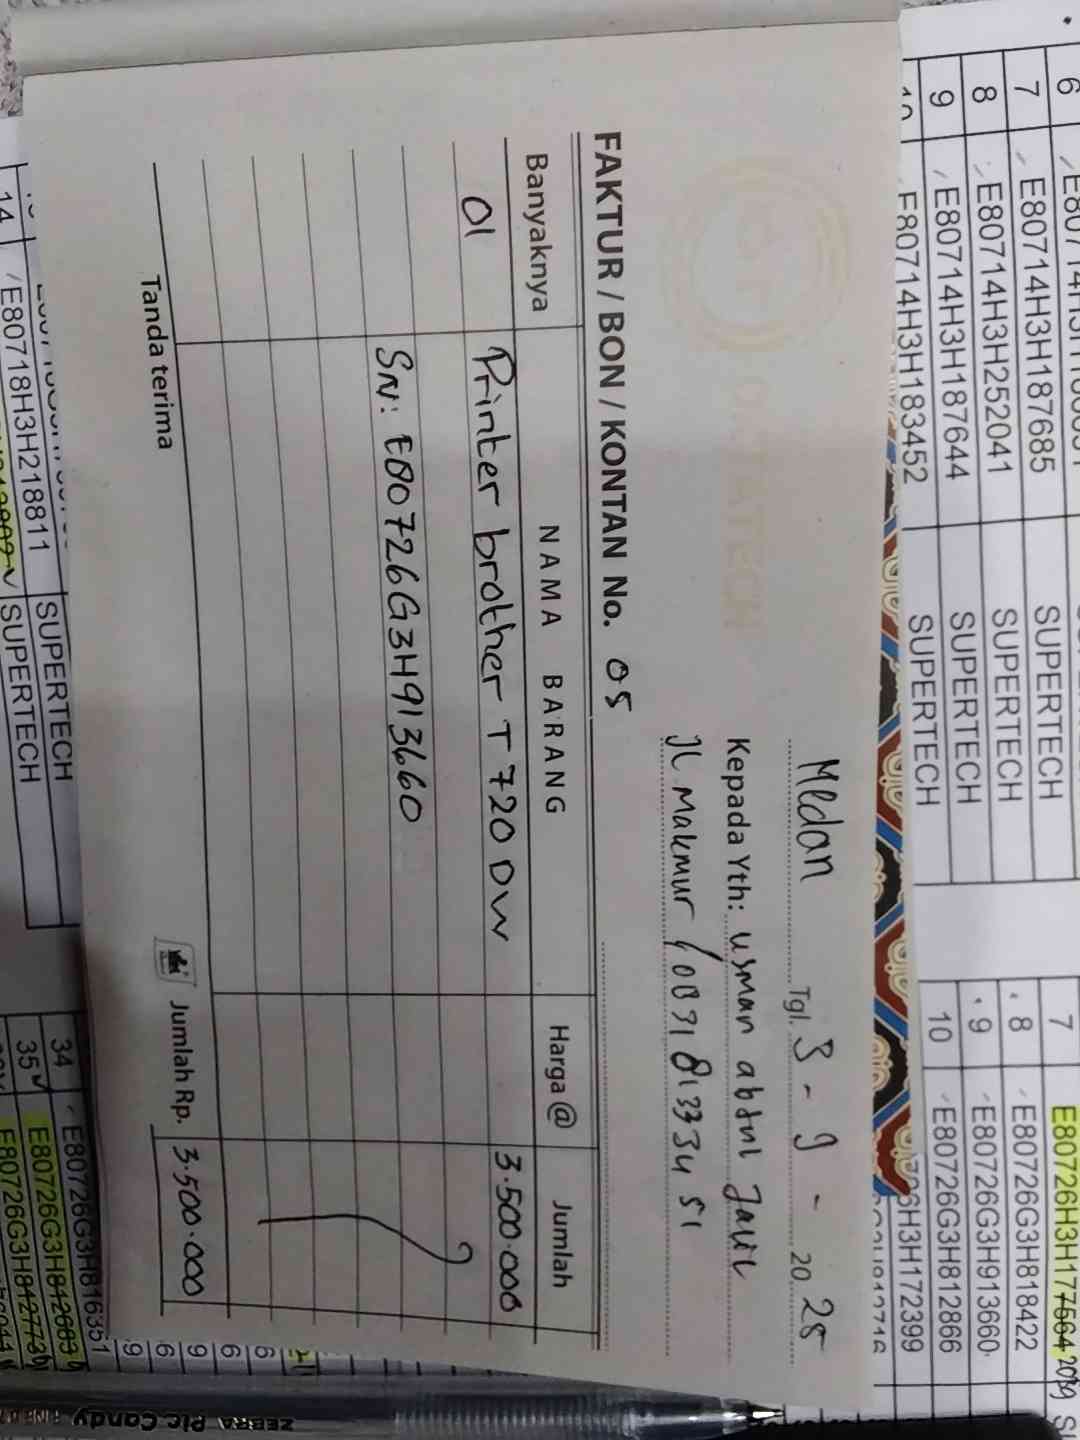 Medan Tgl. 3 - 9 - 20.25
Kepada Yth: usman abdul Jalil
Jl. Makmur / 0831 8133 3451
FAKTUR / BON / KONTAN No. 05
Banyaknya NAMA BARANG Harga @ Jumlah
01 Printer brother T720 DW 3.500.000
SN: E80726G3H913660
Tanda terima Jumlah Rp. 3.500.000
7 E80714H3H187685 SUPERTECH
8 E80714H3H252041 SUPERTECH
9 E80714H3H187644 SUPERTECH
E80714H3H183452 SUPERTECH
7 E80726H3H177564 2039
8 E80726G3H818422
9 E80726G3H913660
10 E80726G3H812866
6H3H172399
SUPERTECH
14 E80718H3H218811 SUPERTECH
34 E80726G3H816351
35 E80726G3H812683
E80726G3H842773
ZEBRA Plc Candy